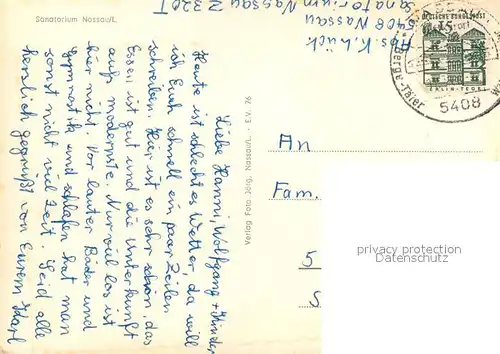 Sanatorium Nassau/L.
Abs. K. Lück
5408 Nassau
Sanatorium Nassau Z 320 I
DEUTSCHE BUNDESPOST
15
BERLIN-TEGEL
5408
Liebe Hanni, Wolfgang + Kinder
Heute ist schlechtes Wetter, da will
ich Euch schnell ein paar Zeilen
schreiben. Hier ist es sehr schön, das
Essen ist gut und die Unterkunft
auf modernste. Nur viel los ist
hier nicht. Vor lauter Bäder und
Gymnastik und schlafen hat man
sonst nicht viel Zeit. Seid alle
herzlich gegrüßt von Eurem Karl
Verlag Foto Jörg, Nassau/L. - E.V. 76
An
Fam.
5
S
privacy protection
AnsichtskartenCenter